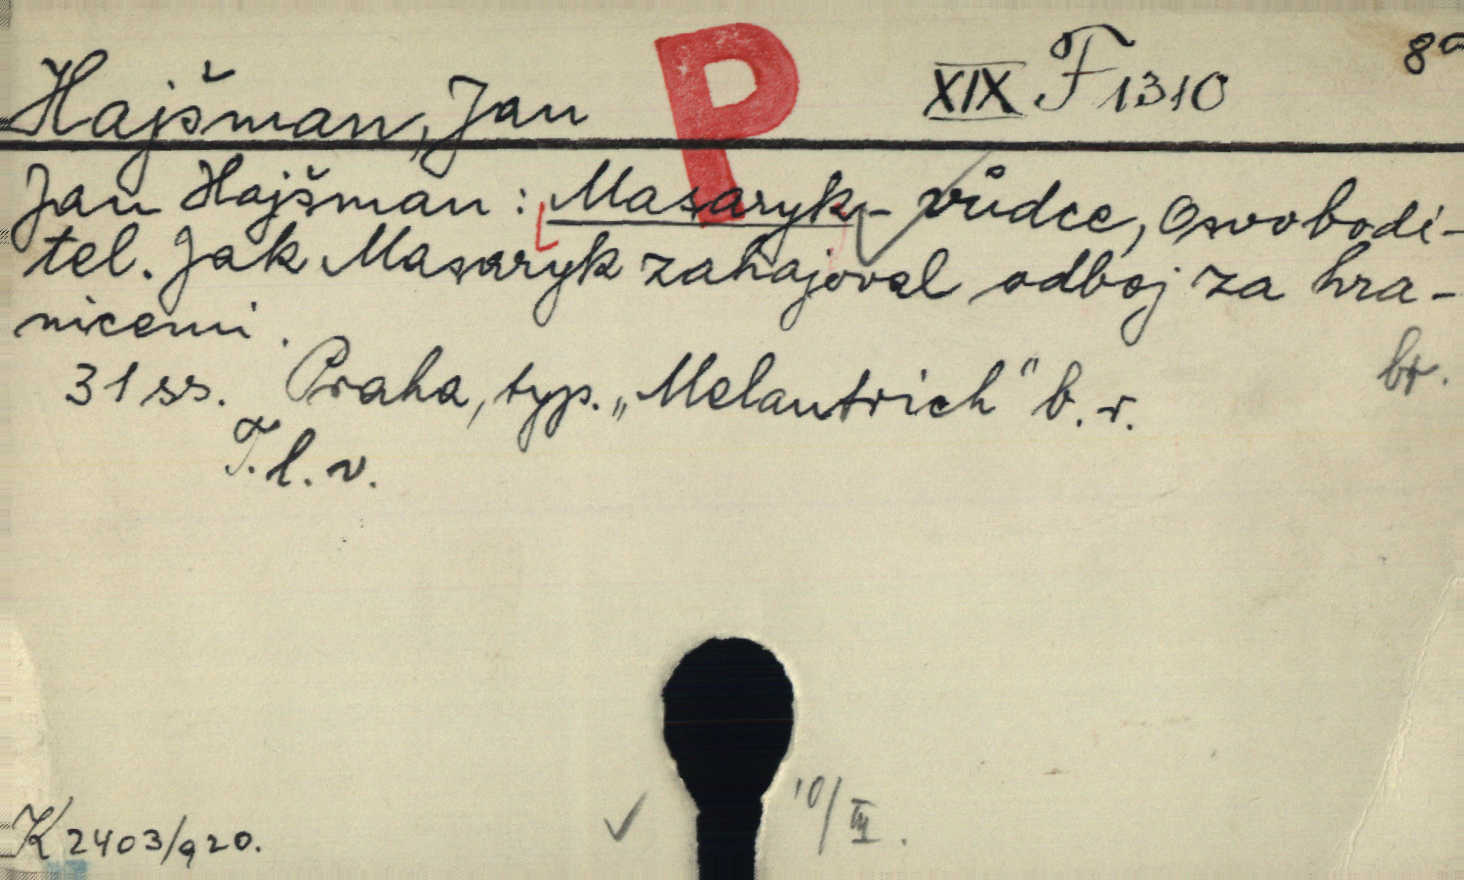 Hajšman, Jan P XIX F 1310 8°
Jan Hajšman: Masaryk - vůdce, osvobodi-
tel. Jak Masaryk zahajoval odboj za hra-
nicemi.
31 ss. Praha, typ. „Melantrich" b. r.
br.
T. l. v.
K 2403/920.
10/III.